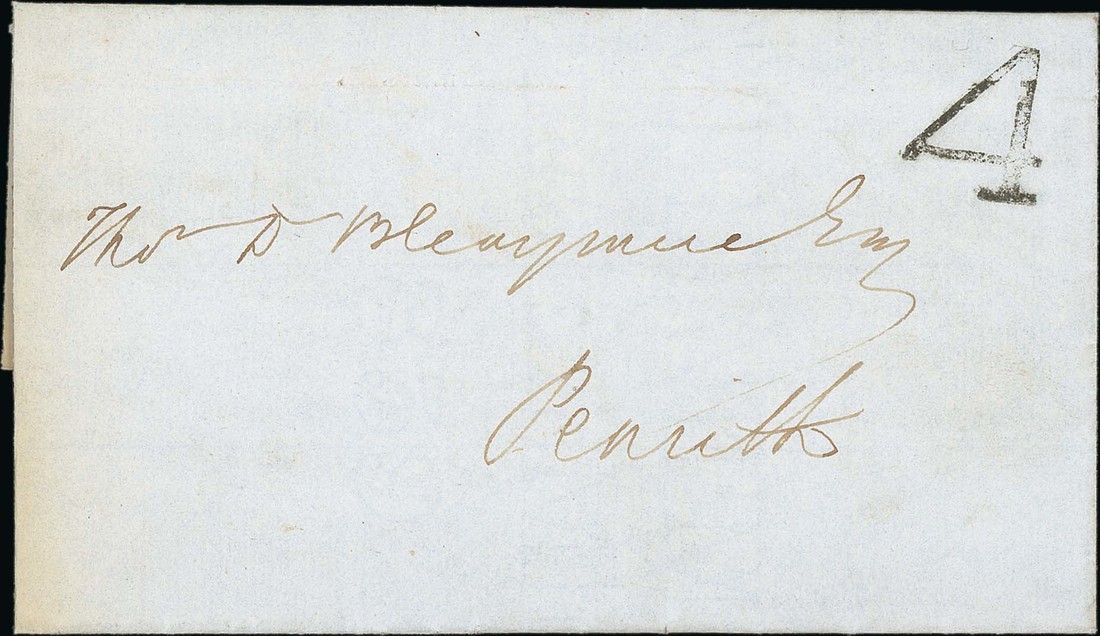 4
Thos D Bleaymire Esq
Penrith